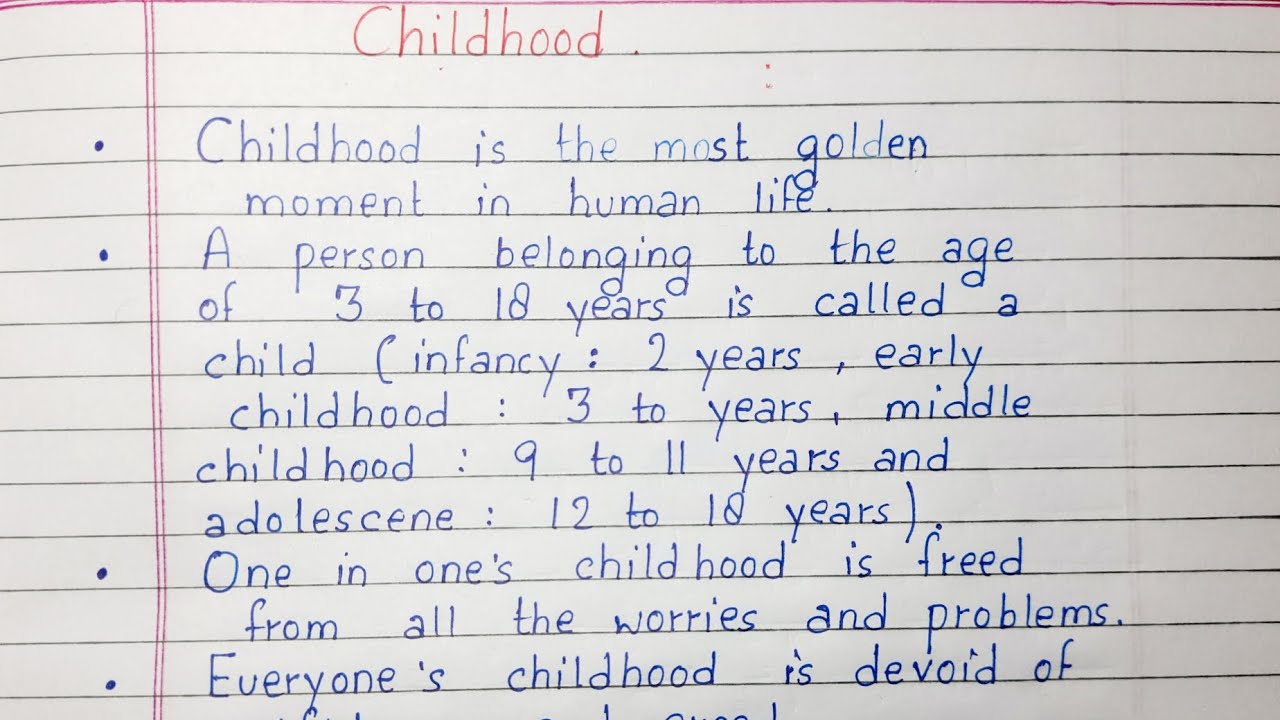 Childhood.
• Childhood is the most golden
moment in human life.
• A person belonging to the age
of 3 to 18 years is called a
child (infancy: 2 years, early
childhood: 3 to years, middle
childhood: 9 to 11 years and
adolescene: 12 to 18 years).
• One in one's childhood is freed
from all the worries and problems.
• Everyone's childhood is devoid of